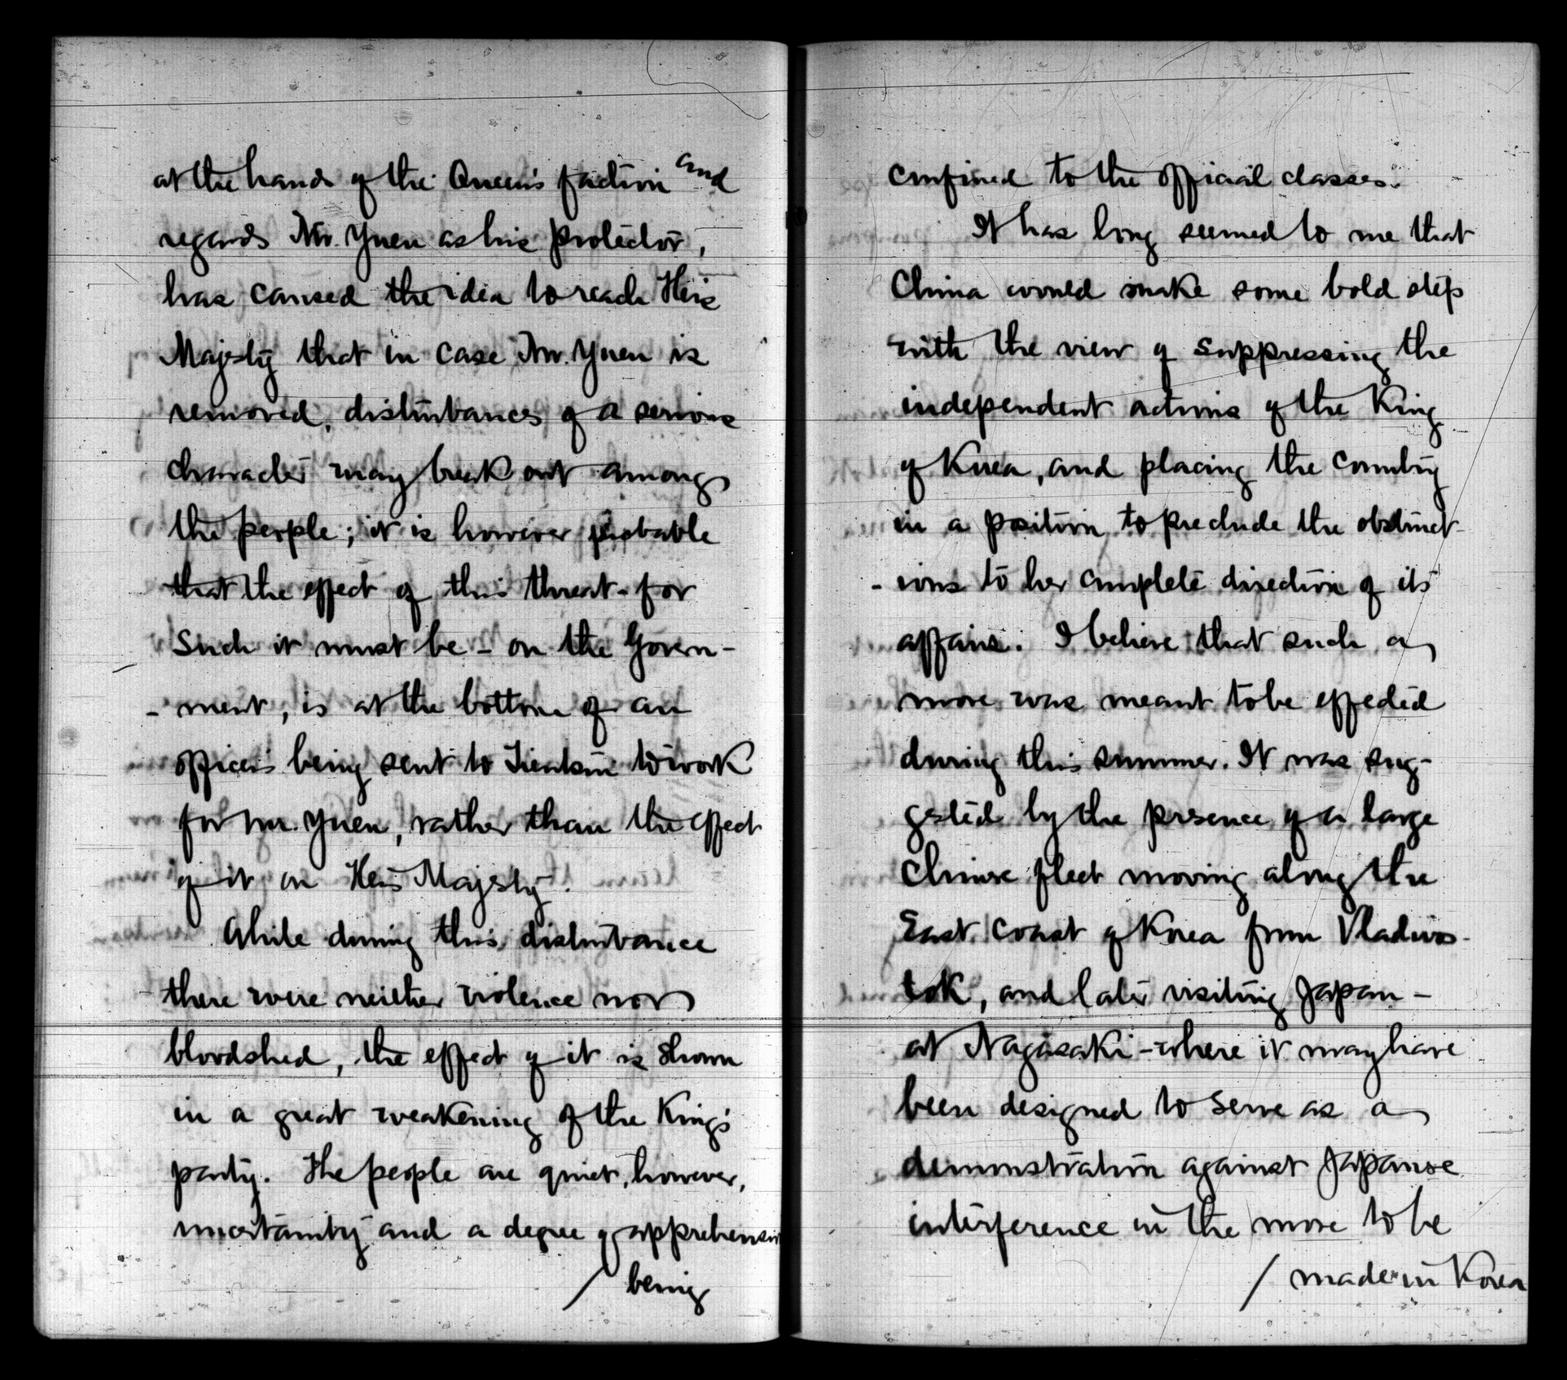 at the hands of the Queen's faction and
regards Mr. Yuen as his protector,
has caused the idea to reach His
Majesty that in case Mr. Yuen is
removed, disturbances of a serious
character may break out among
the people; it is however probable
that the effect of this threat - for
such it must be - on the Govern-
- ment, is at the bottom of an
officer's being sent to Tientsin to work
for Mr. Yuen, rather than the effect
of it on His Majesty.
While during this disturbance
there were neither violence nor
bloodshed, the effect of it is shown
in a great weakening of the King's
party. The people are quiet, however,
uncertainty and a degree of apprehension
/ being
confined to the official classes.
It has long seemed to me that
China would make some bold step
with the view of suppressing the
independent actions of the King
of Korea, and placing the country
in a position to preclude the obstruct-
- ions to her complete direction of its
affairs. I believe that such a
move was meant to be effected
during this summer. It was sug-
gested by the presence of a large
Chinese fleet moving along the
East coast of Korea from Vladivos-
tok, and later visiting Japan -
at Nagasaki - where it may have
been designed to serve as a
demonstration against Japanese
interference in the move to be
/ made in Korea